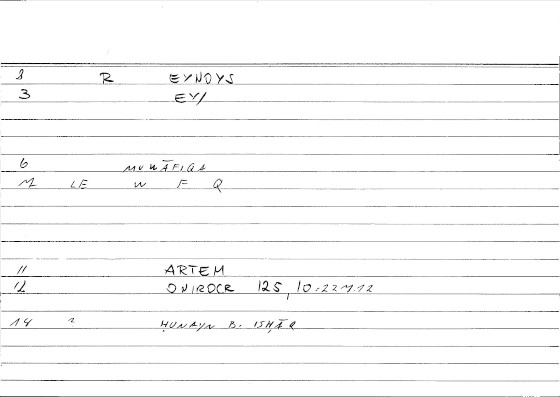 1 R EYNOYS
3 EY/
6 MUWĀFIQA
M LE W F Q
11 ARTEM
12 ONIROCR 125, 10-22
14 2 ḤUNAYN B. ISḤĀQ